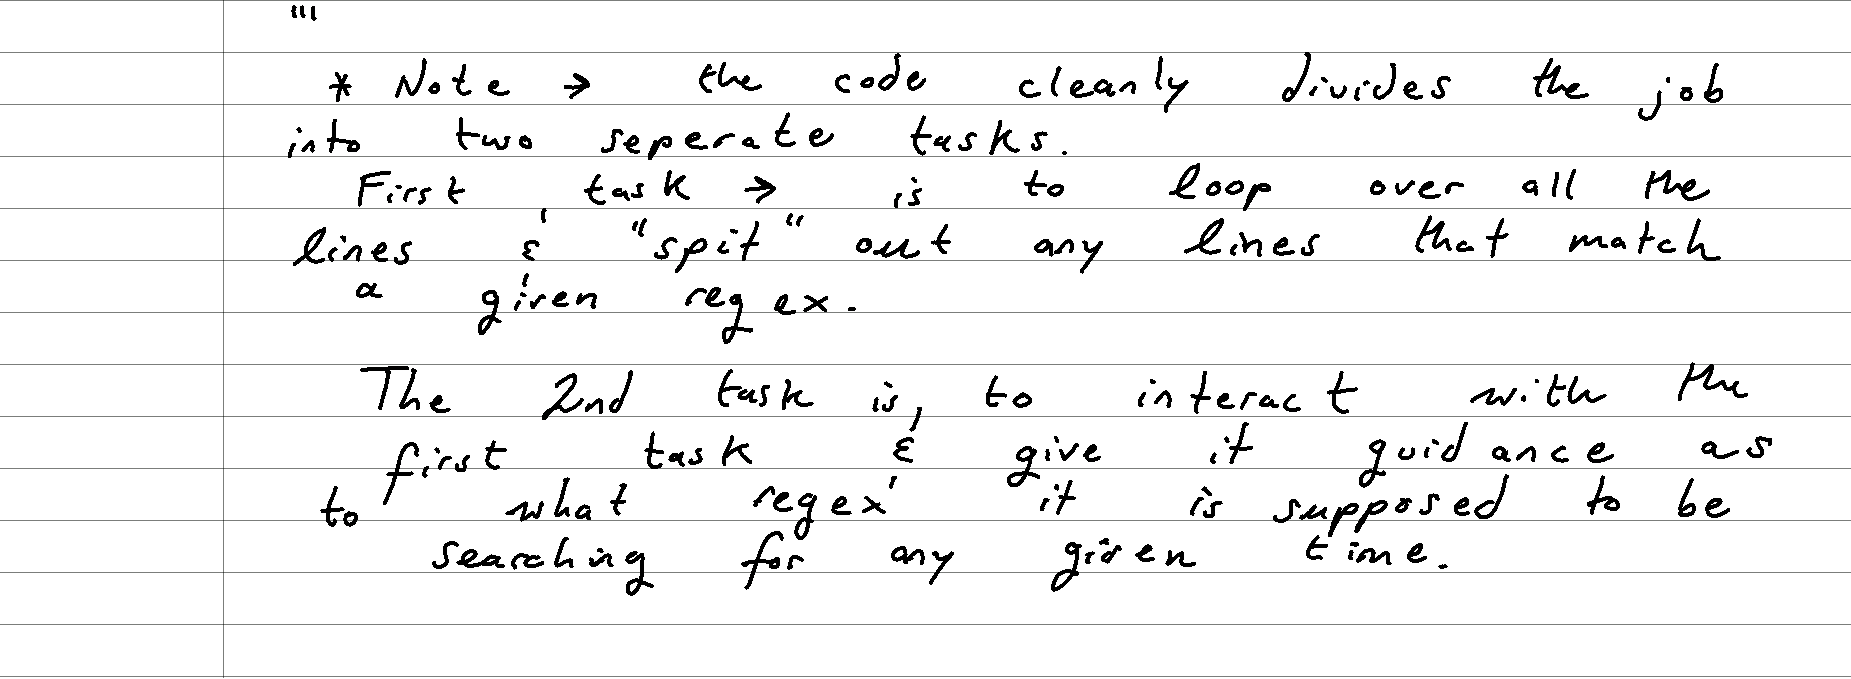 "'
* Note → the code cleanly divides the job
into two seperate tasks.
First task → is to loop over all the
lines & "spit" out any lines that match
a given regex.
The 2nd task is, to interact with the
first task & give it guidance as
to what regex it is supposed to be
searching for any given time.